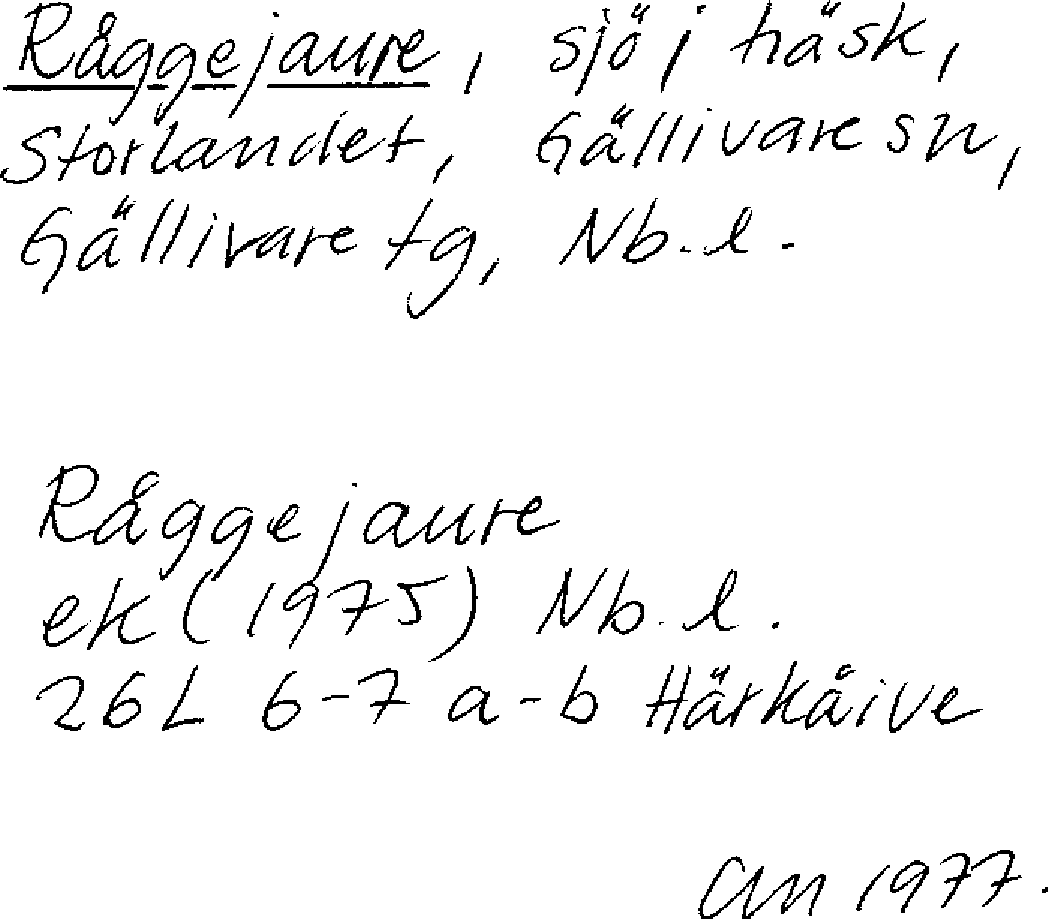 Råggejaure, sjö i träsk,
Storlandet, Gällivare sn,
Gällivare tg, Nb. l.
Råggejaure
ek (1975) Nb. l.
26L 6-7 a-b Härkåive
1977.